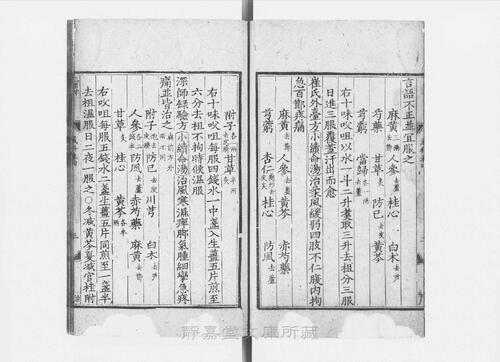 言語不正並宜服之
麻黃去節 人參去蘆 黃芩
芍藥 防己去皮 桂心
芎藭 當歸去蘆
右十味㕮咀以水一斗二升煮取三升去柤分三服
日進三服覆蓋汗出而愈
崔氏外臺方小續命湯治柔風緩弱四肢不仁腹内拘
急百節疼痛
麻黃去節 人參去蘆 赤芍藥
桂心 甘草炙 黃芩
芎藭 杏仁 防風去蘆
附子 甘草炙
右㕮咀每服四錢水一中盞入生薑五片煎至
六分去柤不拘時候溫服
深師録驗方小續命湯治風寒濕痺脚氣腫細攣急疼
痛並皆治之
附子 防己去皮 川芎 白术去蘆
人參去蘆 防風去蘆 赤芍藥 麻黃去節
甘草炙 桂心 黃芩
右㕮咀每服五錢水二盞生薑五片同煎至一盞半
去柤溫服日二夜一服之○冬減黃芩夏減官桂附
靜嘉堂文庫所藏